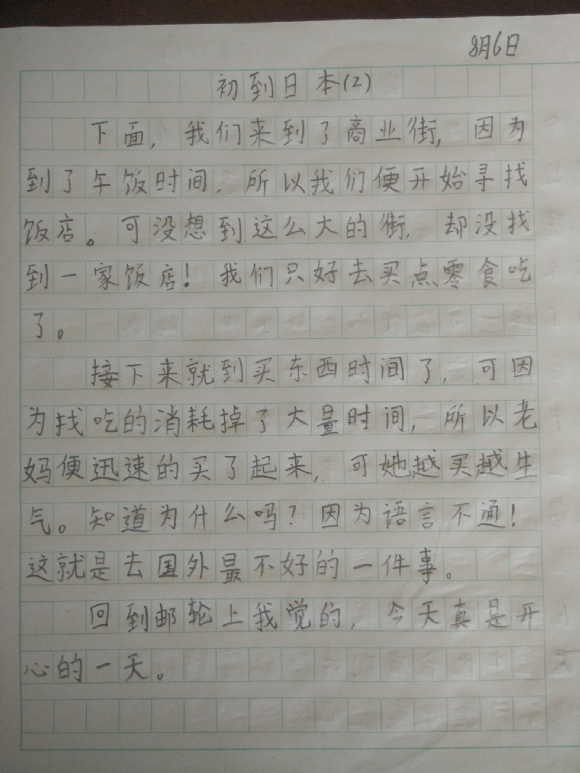 8月6日
初到日本(2)
下面，我们来到了商业街，因为
到了午饭时间，所以我们便开始寻找
饭店。可没想到这么大的街，却没找
到一家饭店！我们只好去买点零食吃
了。
接下来就到买东西时间了，可因
为找吃的消耗掉了大量时间，所以老
妈便迅速的买了起来，可她越买越生
气。知道为什么吗？因为语言不通！
这就是去国外最不好的一件事。
回到邮轮上我觉的，今天真是开
心的一天。